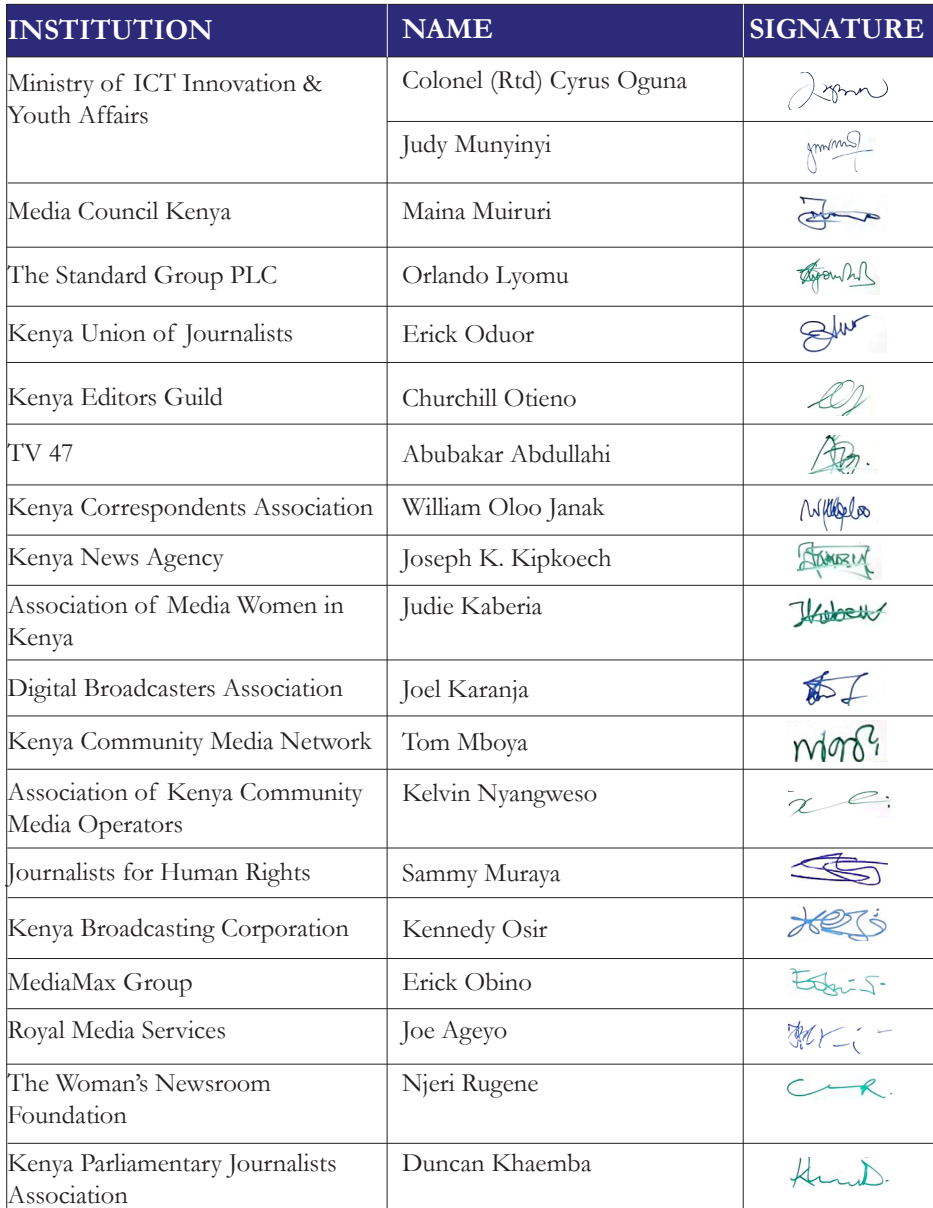 INSTITUTION NAME SIGNATURE
Ministry of ICT Innovation &
Youth Affairs
Colonel (Rtd) Cyrus Oguna
Judy Munyinyi
Media Council Kenya Maina Muiruri
The Standard Group PLC Orlando Lyomu
Kenya Union of Journalists Erick Oduor
Kenya Editors Guild Churchill Otieno
TV 47 Abubakar Abdullahi
Kenya Correspondents Association William Oloo Janak
Kenya News Agency Joseph K. Kipkoech
Association of Media Women in
Kenya
Judie Kaberia
Digital Broadcasters Association Joel Karanja
Kenya Community Media Network Tom Mboya
Association of Kenya Community
Media Operators
Kelvin Nyangweso
Journalists for Human Rights Sammy Muraya
Kenya Broadcasting Corporation Kennedy Osir
MediaMax Group Erick Obino
Royal Media Services Joe Ageyo
The Woman's Newsroom
Foundation
Njeri Rugene
Kenya Parliamentary Journalists
Association
Duncan Khaemba